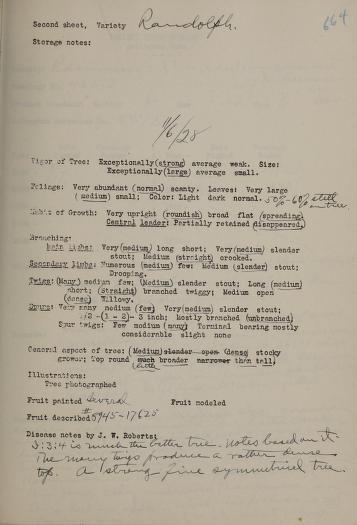 664
Second sheet, Variety Randolph.
Storage notes:
11/6/28
Vigor of Tree: Exceptionally (strong) average weak. Size:
Exceptionally (large) average small.
Foliage: Very abundant (normal) scanty. Leaves: Very large
(medium) small; Color: Light dark normal. 50%-60% still on tree
Habit of Growth: Very upright (roundish) broad flat (spreading)
Central leader: Partially retained (disappeared)
Branching:
Main limbs: Very (medium) long short; Very (medium) slender
stout; Medium (straight) crooked.
Secondary limbs: Numerous (medium) few; Medium (slender) stout;
Drooping.
Twigs: (Many) medium few; (Medium) slender stout; Long (medium)
short; (Straight) branched twiggy; Medium open
(dense) Willowy.
Spurs: Very many medium (few) Very (medium) slender stout;
1/2 -(1 - 2)- 3 inch; Mostly branched (unbranched)
Spur twigs: Few medium (many) Terminal bearing mostly
considerable slight none
General aspect of tree: (Medium) slender open (dense) stocky
grower; Top round much broader narrower than tall,
little
Illustrations:
Tree photographed
Fruit painted Several Fruit modeled
Fruit described #5945-17625
Disease notes by J. W. Roberts:
3:3:4 is much the better tree. Notes based on it.
The many twigs produce a rather dense
top. A strong fine symmetrical tree.